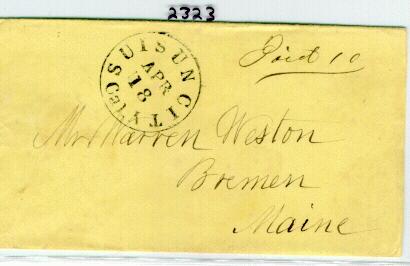 2323
SUISUN CITY (Cal)
APR
18
Paid 10
Mr Warren Weston
Bremen
Maine